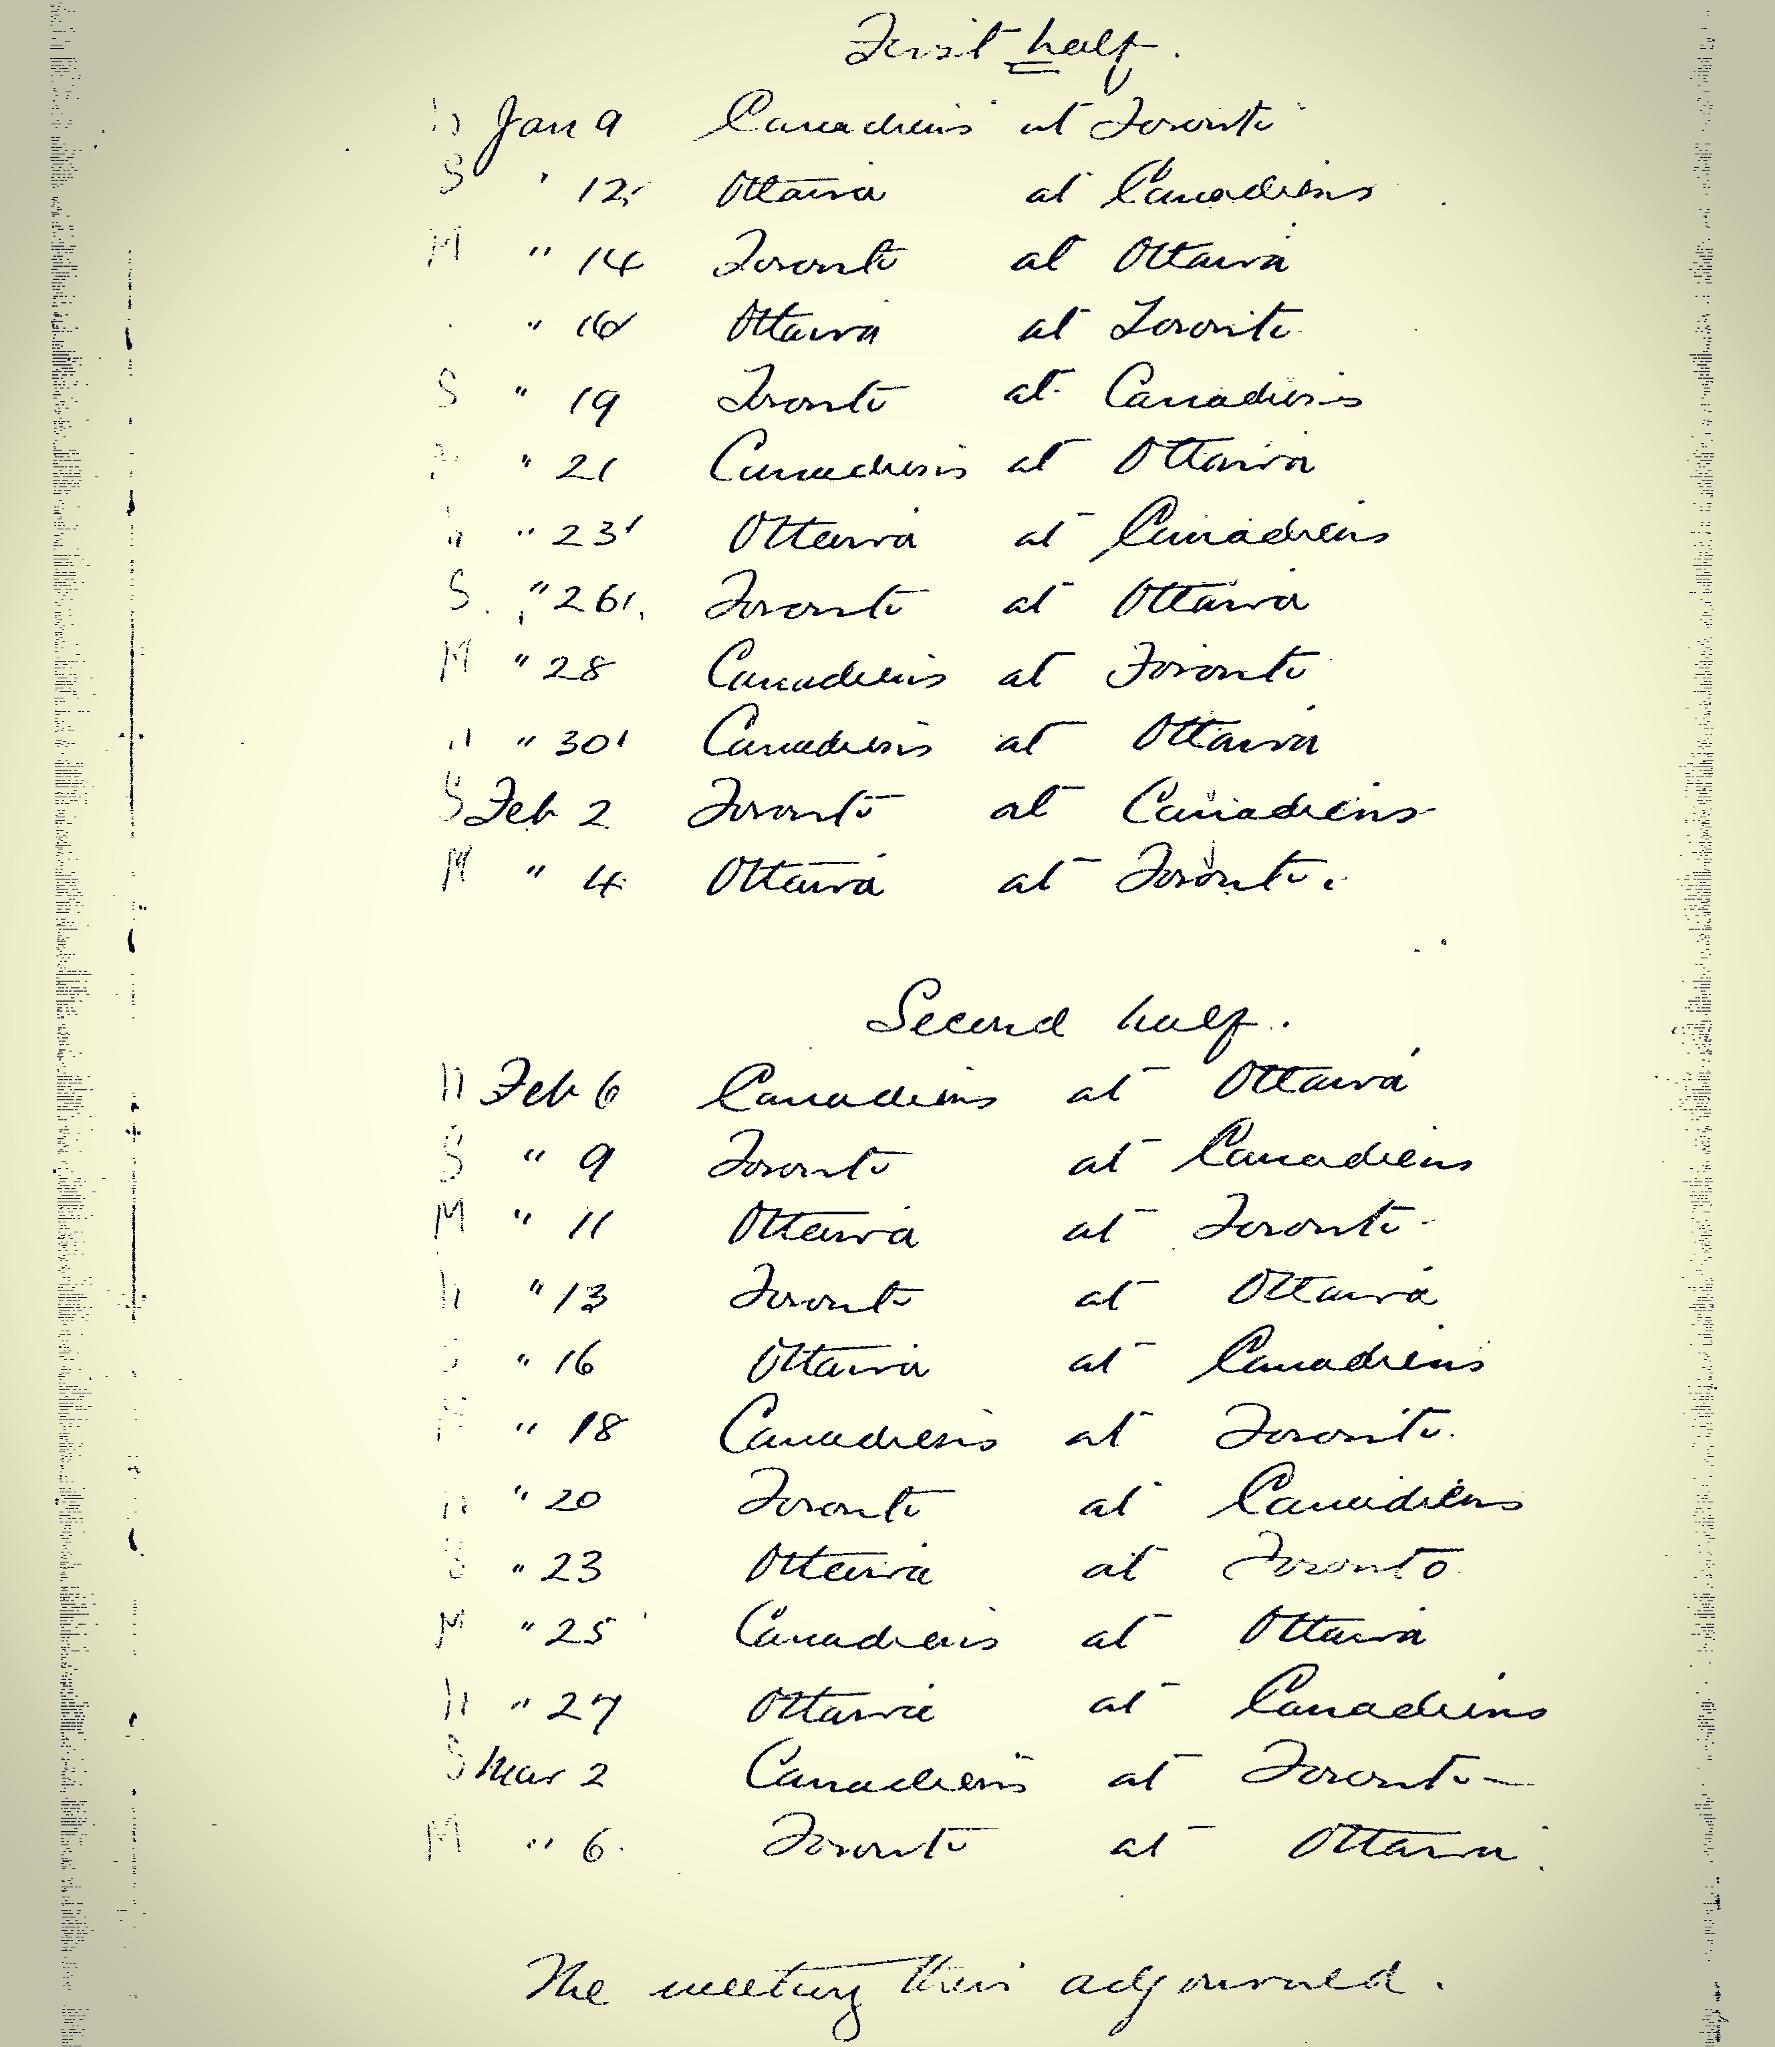 First half.
W Jan 9 Canadiens at Toronto
S " 12 Ottawa at Canadiens
M " 14 Toronto at Ottawa
" 16 Ottawa at Toronto
S " 19 Toronto at Canadiens
" 21 Canadiens at Ottawa
" 23 Ottawa at Canadiens
S. " 26 Toronto at Ottawa
M " 28 Canadiens at Toronto
" 30 Canadiens at Ottawa
S Feb 2 Toronto at Canadiens
M " 4 Ottawa at Toronto.
Second half.
W Feb 6 Canadiens at Ottawa
S " 9 Toronto at Canadiens
M " 11 Ottawa at Toronto
W " 13 Toronto at Ottawa
S " 16 Ottawa at Canadiens
M " 18 Canadiens at Toronto.
" 20 Toronto at Canadiens
S " 23 Ottawa at Toronto
M " 25 Canadiens at Ottawa
W " 27 Ottawa at Canadiens
S Mar 2 Canadiens at Toronto
M " 6. Toronto at Ottawa.
The meeting then adjourned.